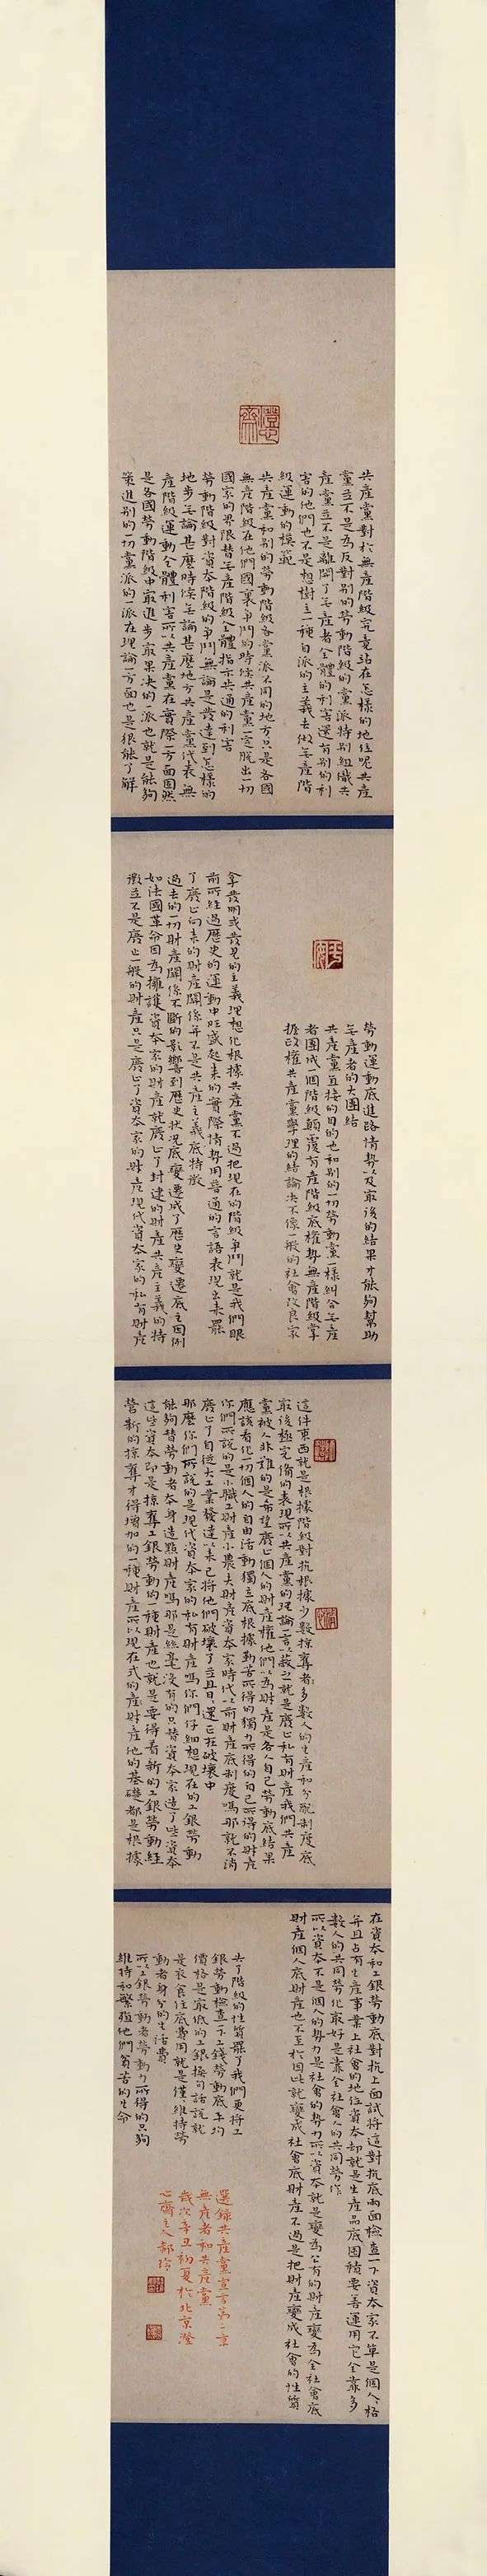 澄心齋
共產黨對於無產階級究竟站在怎樣的地位呢共產
黨並不是為反對別的勞動階級的黨派特別組織共
產黨並不是離開了无產者全體的利害還有別的利
害的他們也不是想樹立一種自派的主義去做无產階
級運動的模範
共產黨和別的勞動階級各黨派不同的地方只是各國
無產階級在他們國裏爭鬥的時候共產黨一定脫出一切
國家的界限替无產階級全體指示共通的利害
勞動階級對資本階級的爭鬥無論是發達到怎樣的
地步无論甚麼時候无論甚麼地方共產黨代表無
產階級運動全體利害所以共產黨在實際一方面固然
是各國勞動階級中最進步最果决的一派也就是能夠
策進別的一切黨派的一派在理論一方面也是很能了解
勞動運動底進路情勢以及最後的結果才能夠幫助
无產者的大團結
共產黨直接的目的也和別的一切勞動黨一樣糾合无產
者團成一個階級顛覆有產階級底權勢無產階級掌
握政權共產黨學理的結論決不像一般的社會改良家
拿發明或發見的主義理想化根據共產黨不過把現在的階級爭鬥就是我們眼
前所經過歷史的運動中旺盛起來的實際情勢用普通的言語表現出來罷
了廢止向來的財產關係并不是共產主義底特徵
過去的一切財產關係不斷的影響到歷史狀況底變遷成了歷史變遷底主因例
如法國革命因為擁護資本家的財產就廢止了封建的財產共產主義的特
徵並不是廢止一般的財產只是廢止了資本家的財產現代資本家的私有財產
這件東西就是根據階級對抗根據少數掠奪者多數人的生產和分配制度底
最後極完備的表現所以共產黨的理論一言以蔽之就是廢止私有財產我們共產
黨被人非難的是希望廢止個人的財產權他們以為財產是各人自己勞動底結果
應該看作一切個人的自由活動獨立底根據勤苦所得的獨力所得的自己所得的財產
你們所說的是小職工財產小農夫財產資本家時代以前財產底制度嗎那就不消
廢止了自從大工業發達以來已將他們破壞了並且日日還正在破壞中
那麼你們所說的是現代資本家的私有財產嗎你們仔細想現在的工銀勞動
能夠替勞動者本身造點財產嗎那是絲毫沒有的只替資本家造了些資本
這些資本即是掠奪工銀勞動的一種財產也就是要得着新的工銀勞動經
營新的掠奪才得增加的一種財產所以現在式的產財產他的基礎都是根據
在資本和工銀勞動底對抗上面試將這對抗底兩面檢查一下資本家不單是個人人格
并且占有生產事業上社會的地位資本却就是生產品底囤積要善運用它全靠多
數人的共同勞作最好是靠全社會人的共同勞作
所以資本不是個人的勢力是社會的勢力所以資本就是變為公有的財產變為全社會底
財產個人底財產也不至於因此就變成社會底財產不過是把財產變成社會的性質
失了階級的性質罷了我們更將工
銀勞動檢查一下工錢勞動底平均
價格是最低的工銀換句話說就
是衣食住底費用就是僅僅維持勞
動者身分的生活費
所以工銀勞動者勞動力所得的只夠
維持和繁殖他們貧苦的生命
選錄共產黨宣言第二章
無產者和共產黨
歲次辛丑初夏於北京澄
心齋主人郝玲